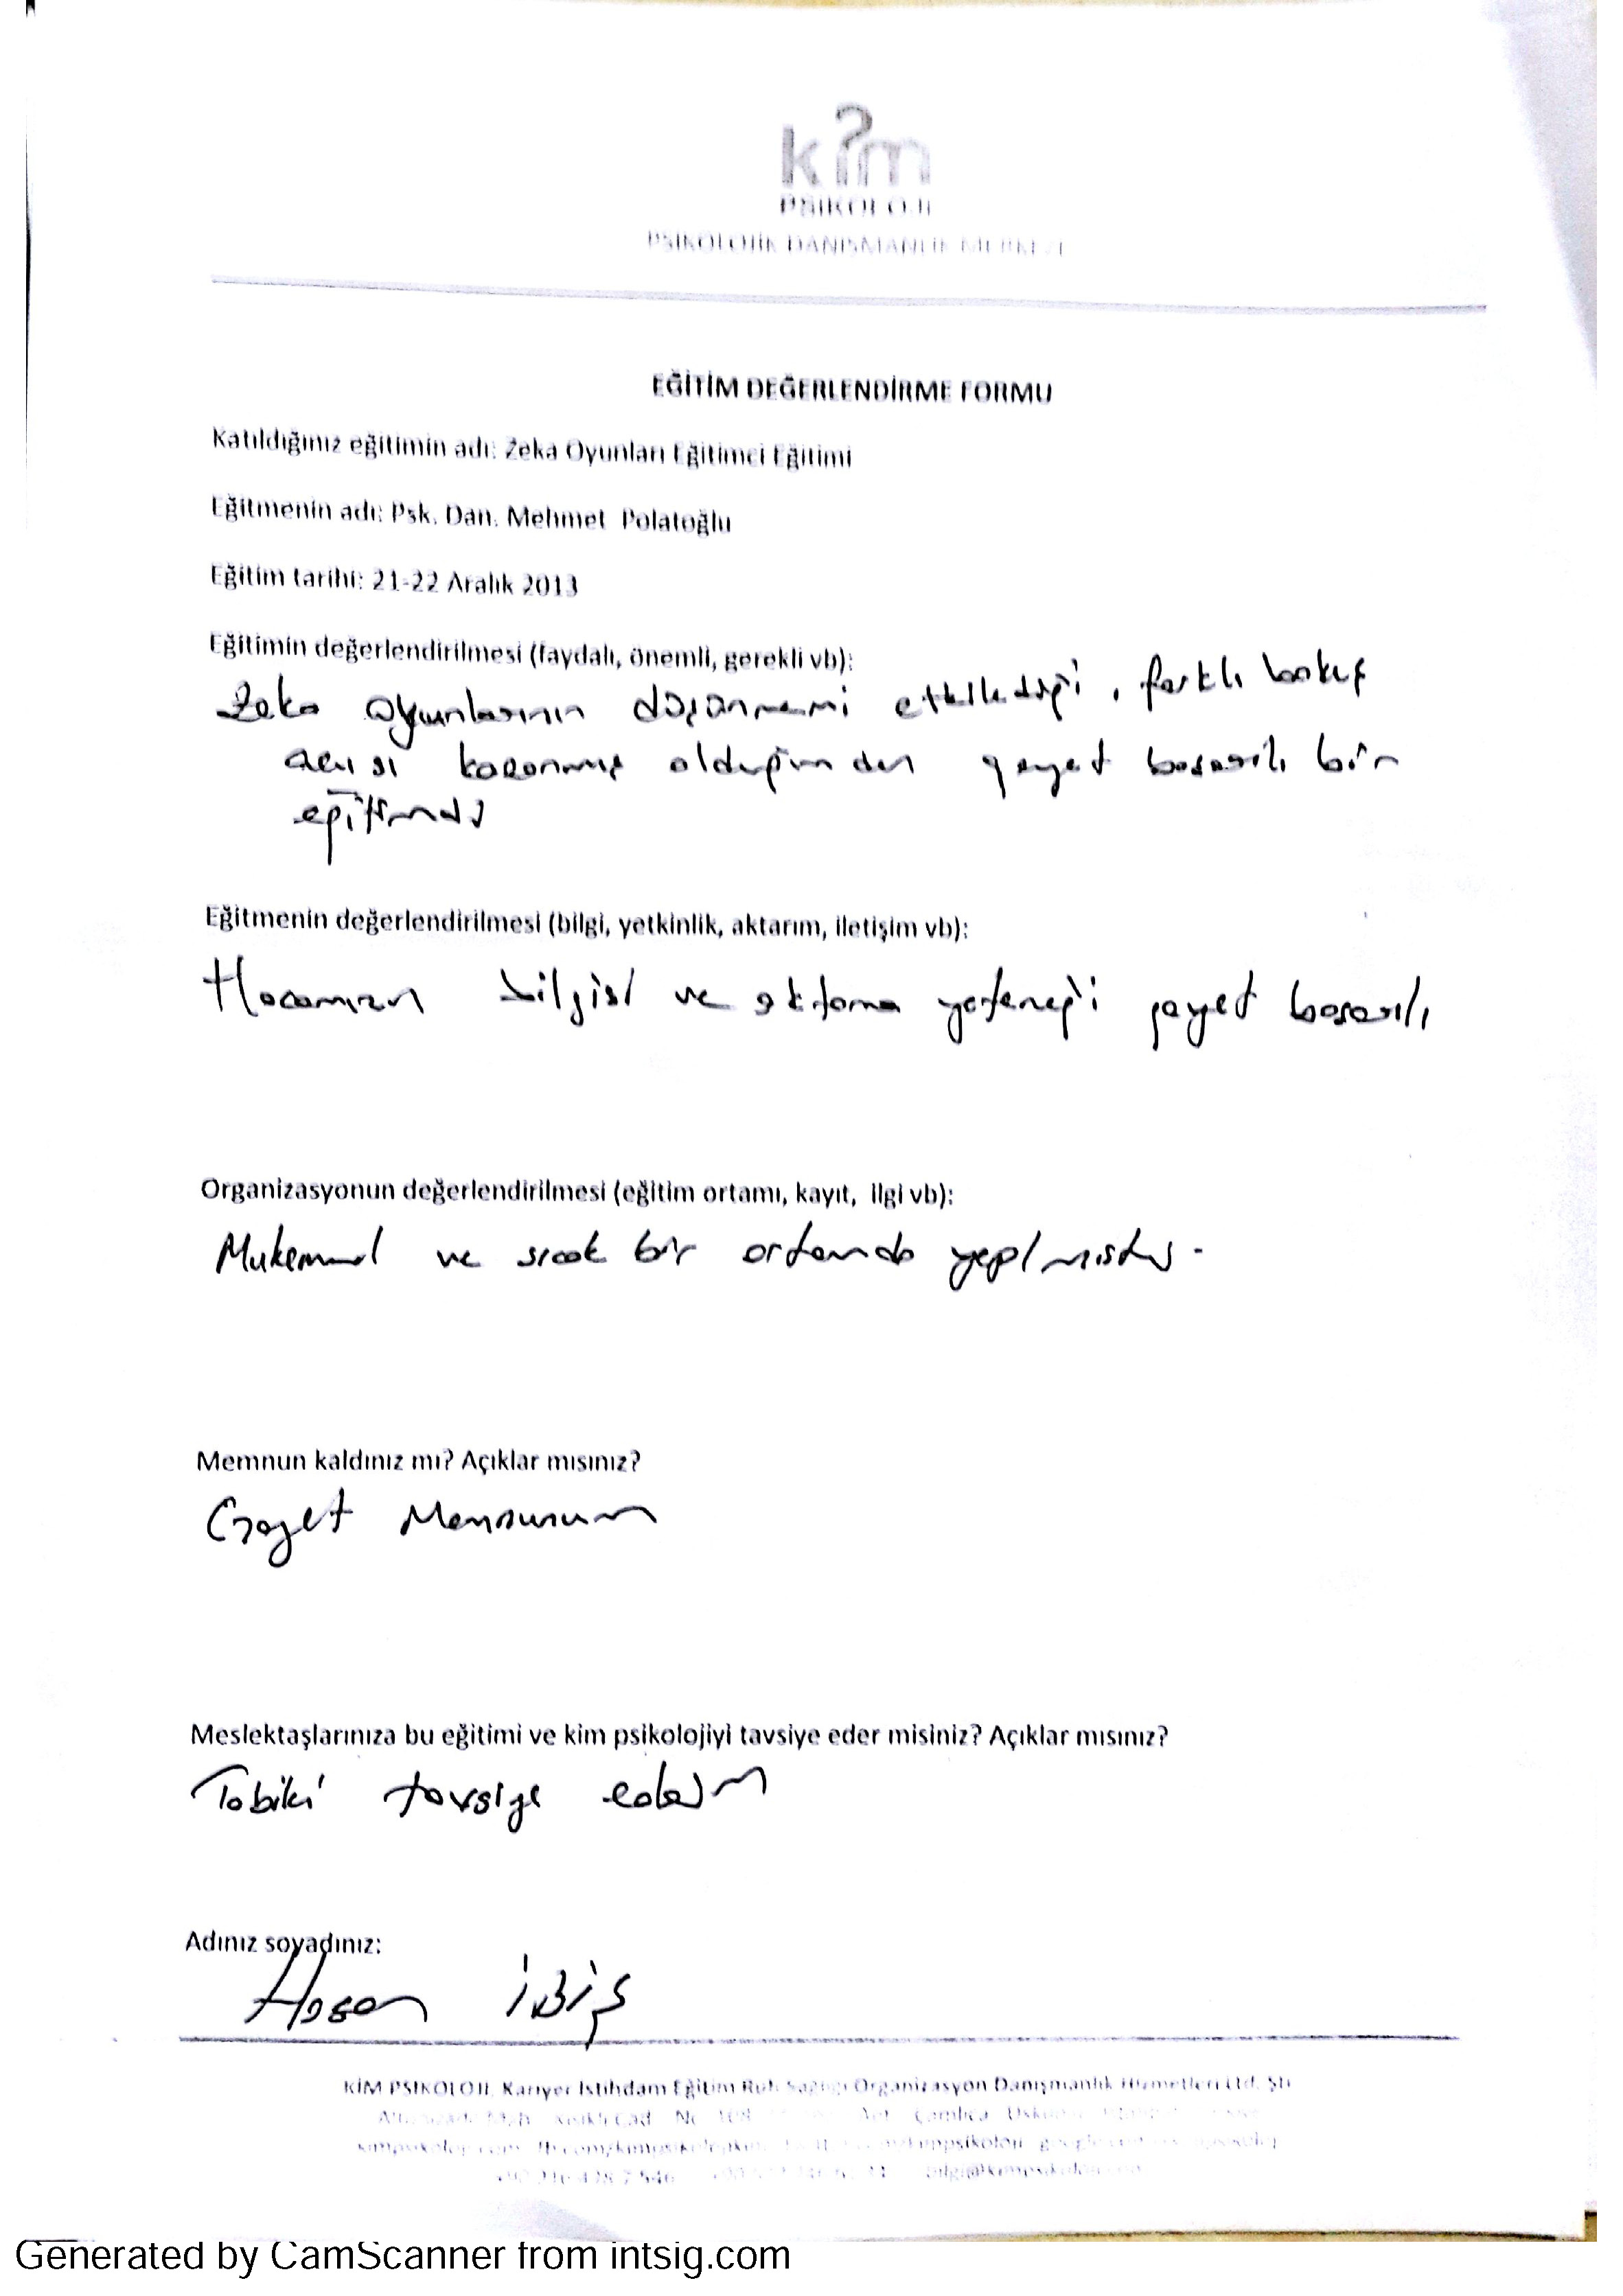 kim
PSİKOLOJİ
PSİKOLOJİK DANIŞMANLIK MERKEZİ
EĞİTİM DEĞERLENDİRME FORMU
Katıldığınız eğitimin adı: Zeka Oyunları Eğitimci Eğitimi
Eğitmenin adı: Psk. Dan. Mehmet Polatoğlu
Eğitim tarihi: 21-22 Aralık 2013
Eğitimin değerlendirilmesi (faydalı, önemli, gerekli vb):
Zeka oyunlarının düşünmemi etkilediği, farklı bakış
açısı kazanmış olduğumdan gayet başarılı bir
eğitimdi
Eğitmenin değerlendirilmesi (bilgi, yetkinlik, aktarım, iletişim vb):
Hocamızın bilgisi ve aktarma yeteneği gayet başarılı
Organizasyonun değerlendirilmesi (eğitim ortamı, kayıt, ilgi vb):
Mukemmel ve sıcak bir ortamda yapılmıştır.
Memnun kaldınız mı? Açıklar mısınız?
Gayet Memnunum
Meslektaşlarınıza bu eğitimi ve kim psikolojiyi tavsiye eder misiniz? Açıklar mısınız?
Tabiki tavsiye ederim
Adınız soyadınız:
Hasan İBİŞ
KİM PSİKOLOJİ, Kariyer İstihdam Eğitim Ruh Sağlığı Organizasyon Danışmanlık Hizmetleri Ltd. Şti
Generated by CamScanner from intsig.com